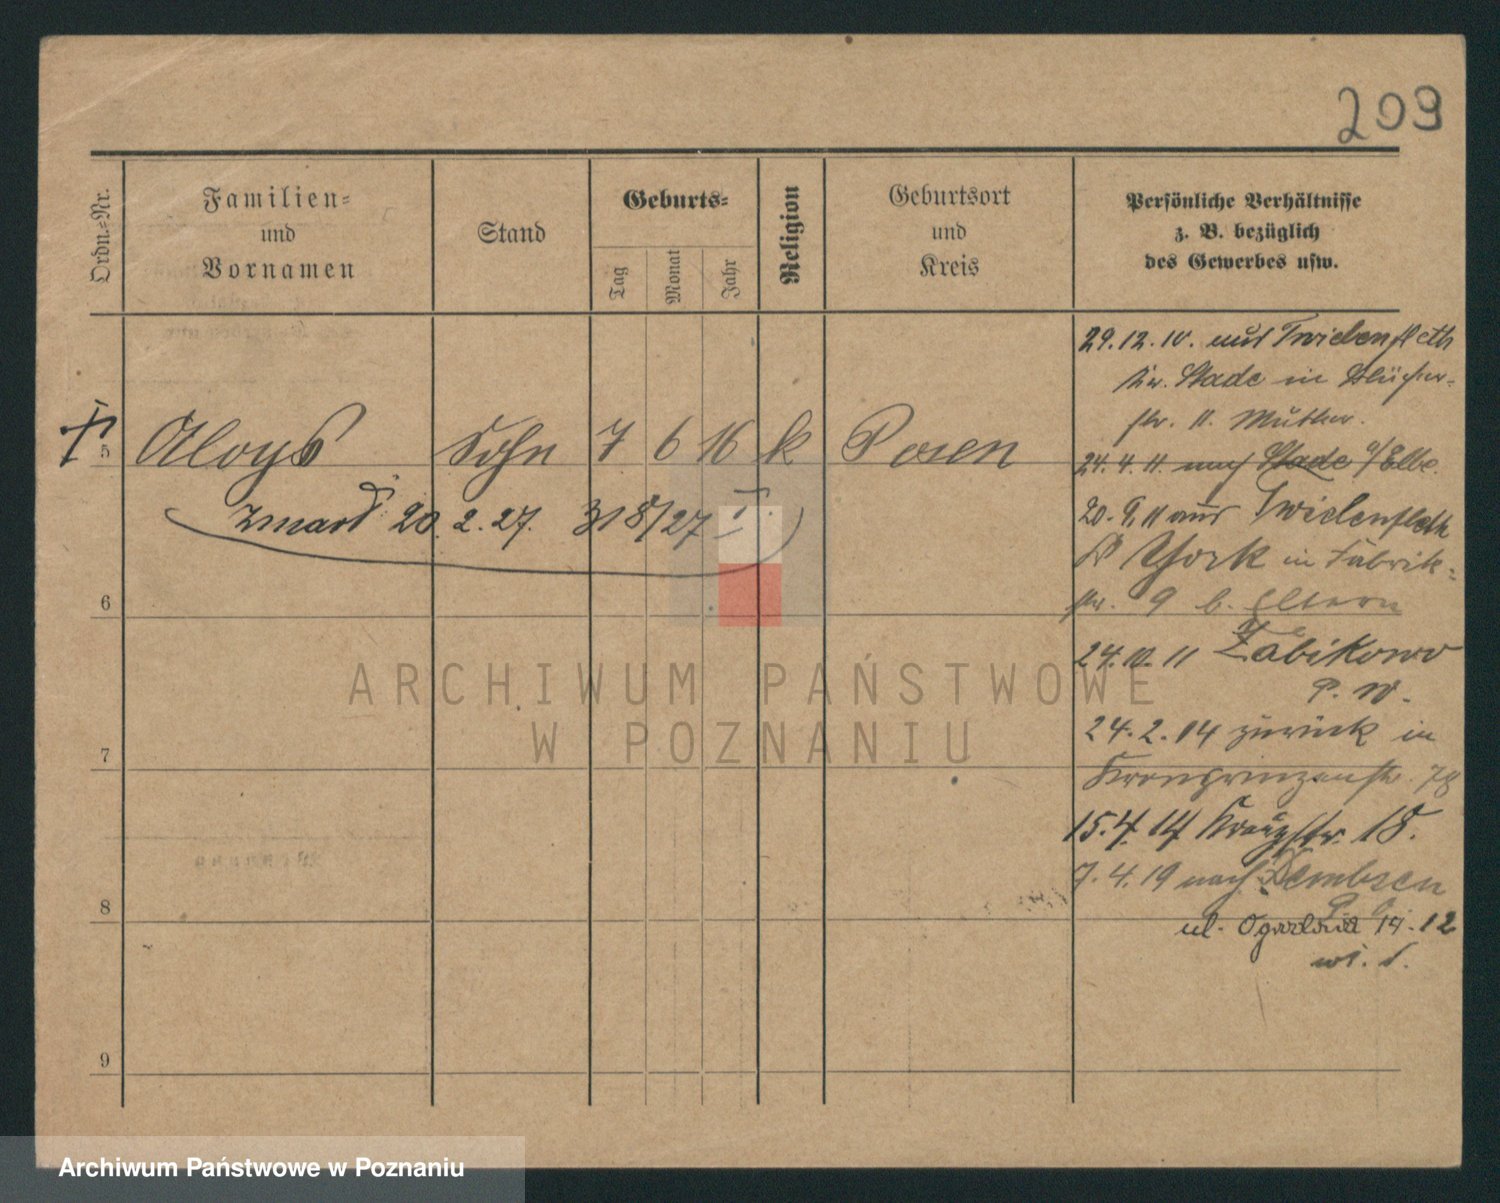 209
Ordn.-Nr.
Familien-
und
Vornamen
Stand
Geburts-
Tag
Monat
Jahr
Religion
Geburtsort
und
Kreis
Persönliche Verhältnisse
z. B. bezüglich
des Gewerbes usw.
5
Aloys Sohn 7 6 16 k Posen
zmarł 20. 2. 27. 318/27 I.
6
7
8
9
29. 12. 10. aus Twielenfleth
Kr. Stade in Blücher-
str. 11. Mutter.
24. 4. 11 nach Stade a/Elbe.
20. 9. 11 aus Twielenfleth
York in Fabrik-
str. 9 b. Eltern
24. 10. 11 Zabikowo
P. W.
24. 2. 14 zurück in
Kronprinzenstr. 78
15. 4. 14 Kreuzstr. 18.
7. 4. 19 nach Dembsen
ul. 14. 12
ARCHIWUM PAŃSTWOWE
W POZNANIU
Archiwum Państwowe w Poznaniu